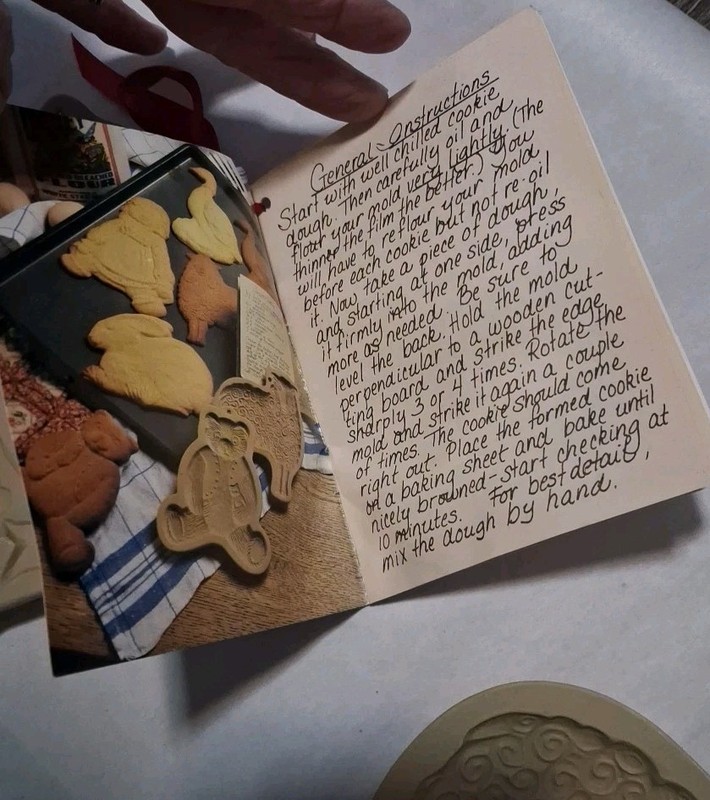 BLEACHED
FLOUR
General Instructions
Start with well chilled cookie
dough. Then carefully oil and
flour your mold very lightly. (The
thinner the film the better.) You
will have to reflour your mold
before each cookie but not re-oil
it. Now take a piece of dough,
and starting at one side, press
it firmly into the mold, adding
more as needed. Be sure to
level the back. Hold the mold
perpendicular to a wooden cut-
ting board and strike the edge
sharply 3 or 4 times. Rotate the
mold and strike it again a couple
of times. The cookie should come
right out. Place the formed cookie
on a baking sheet and bake until
nicely browned - start checking at
10 minutes. For best detail,
mix the dough by hand.